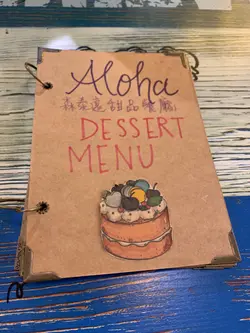 Aloha
甜品餐廳
DESSERT
MENU